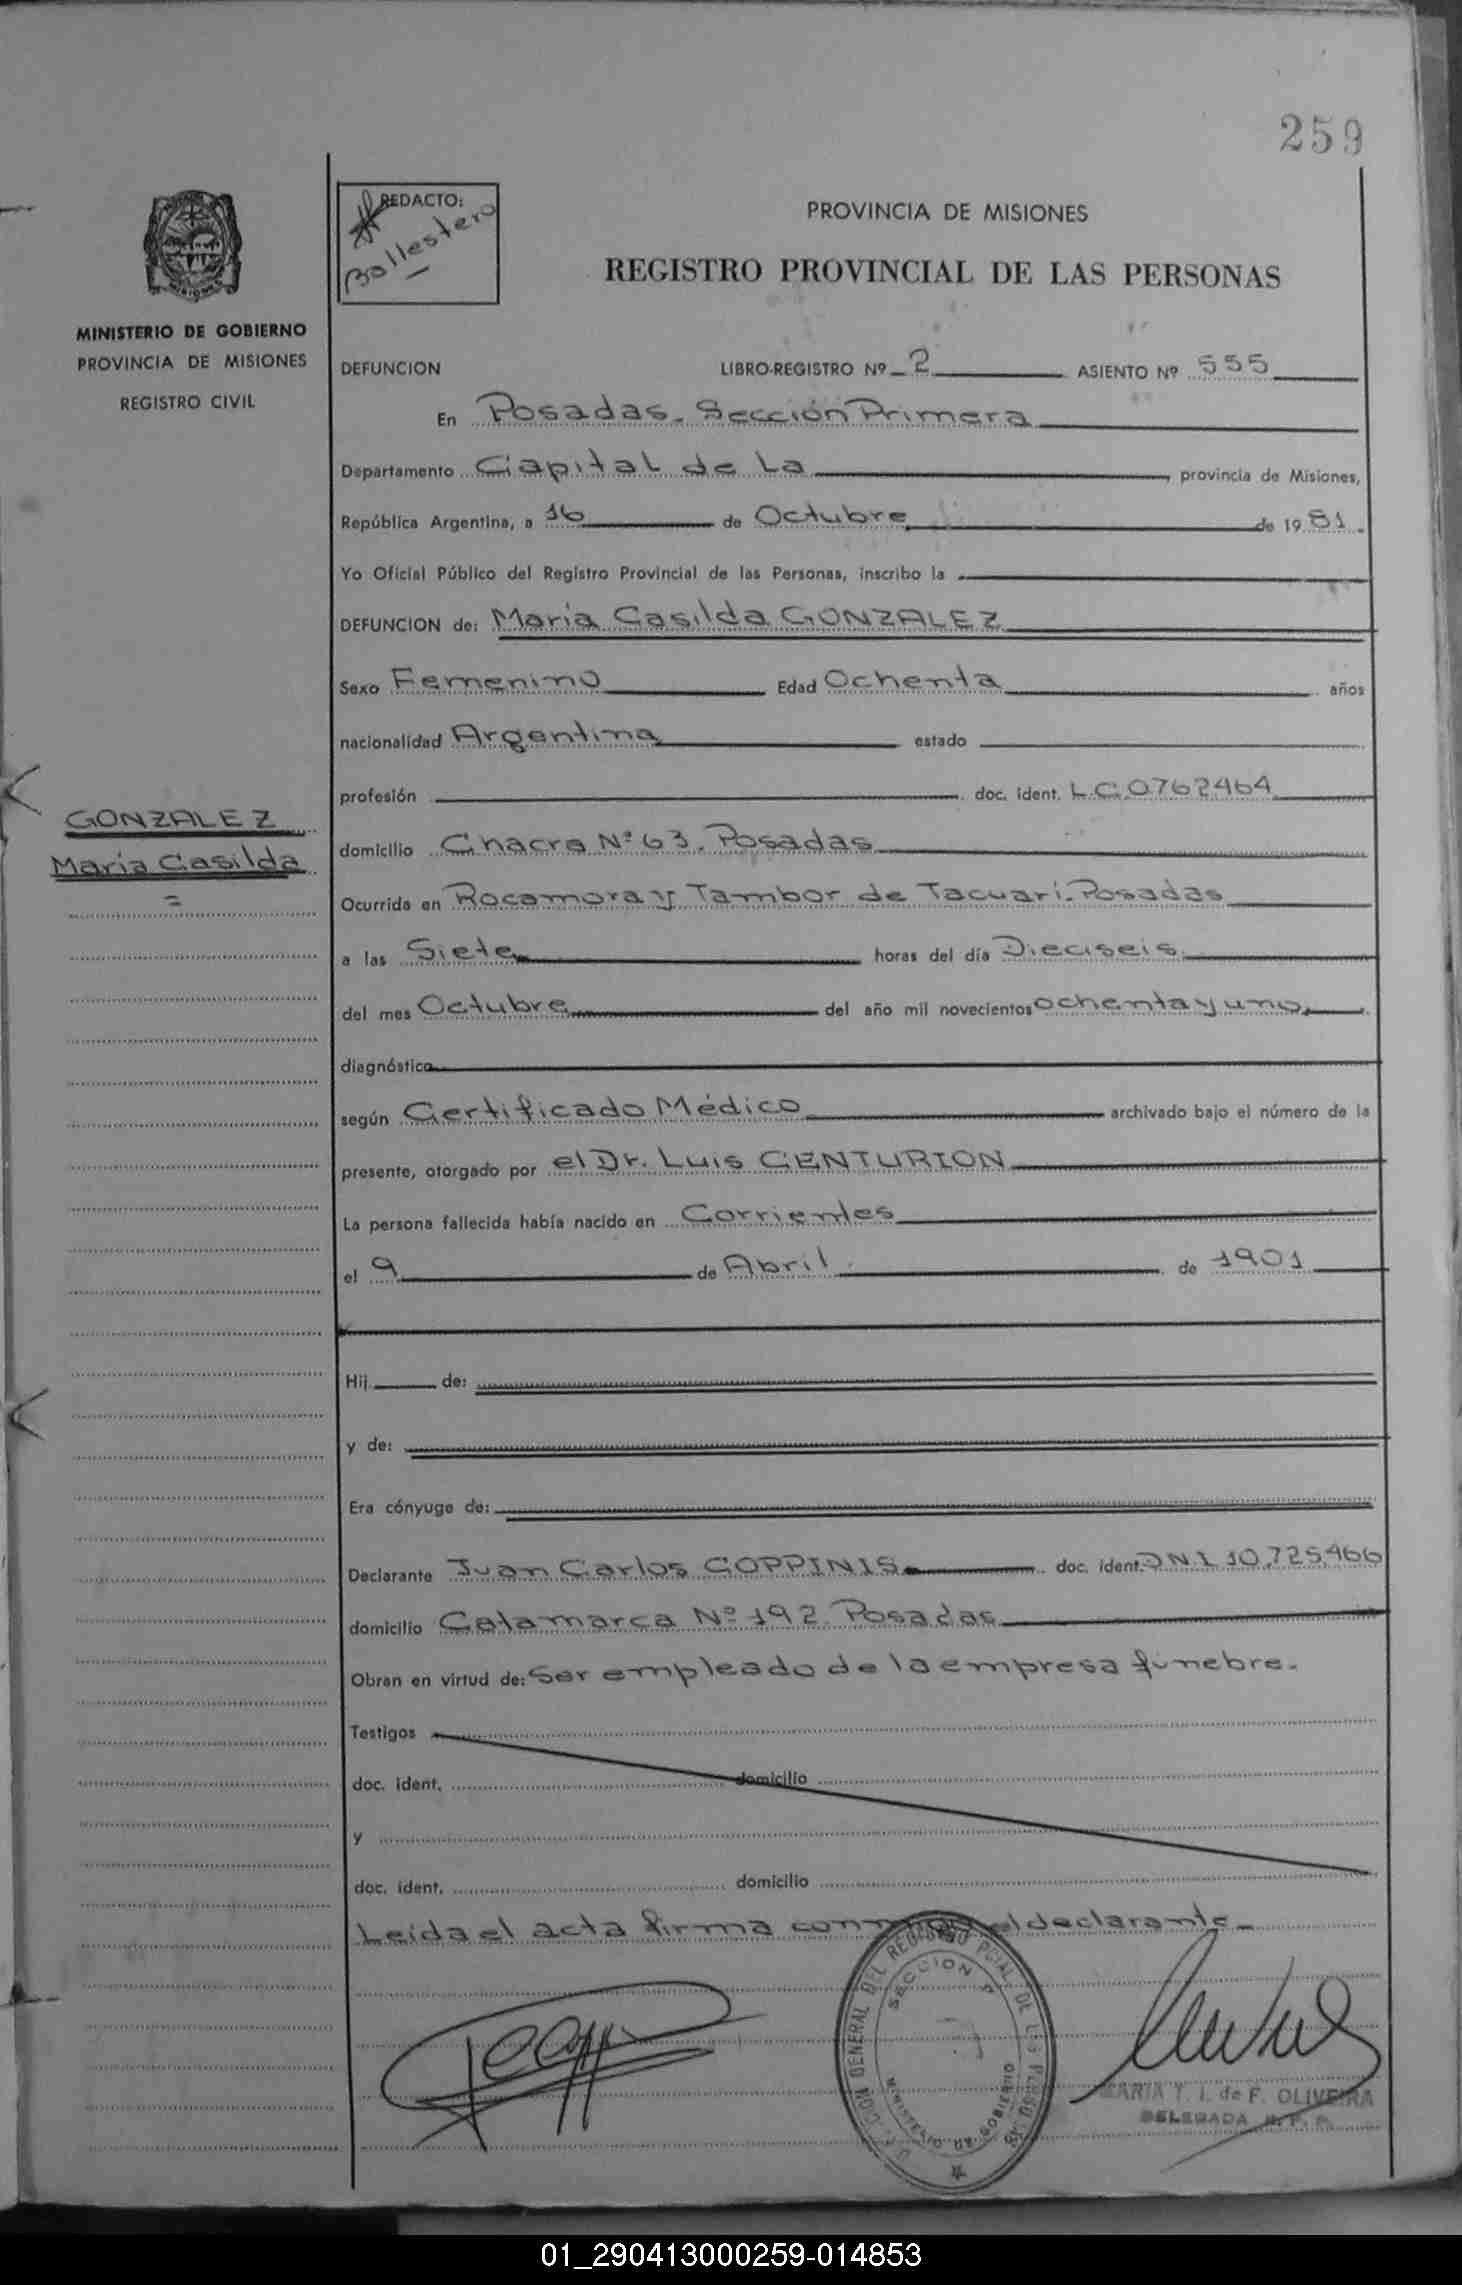 259
REDACTO:
Ballestero
PROVINCIA DE MISIONES
REGISTRO PROVINCIAL DE LAS PERSONAS
MINISTERIO DE GOBIERNO
PROVINCIA DE MISIONES
REGISTRO CIVIL
DEFUNCION LIBRO-REGISTRO Nº 2 ASIENTO Nº 555
En Posadas. Sección Primera
Departamento Capital de La provincia de Misiones,
República Argentina, a 16 de Octubre de 1981.
Yo Oficial Público del Registro Provincial de las Personas, inscribo la
DEFUNCION de: María Casilda GONZALEZ
Sexo Femenino Edad Ochenta años
nacionalidad Argentina estado
profesión doc. ident. L.C.0762464
GONZALEZ
María Casilda
domicilio Chacra Nº 63. Posadas
Ocurrida en Rocamora y Tambor de Tacuarí. Posadas
a las Siete horas del día Dieciseis
del mes Octubre del año mil novecientos ochenta y uno
diagnóstico
según Certificado Médico archivado bajo el número de la
presente, otorgado por el Dr. Luis CENTURION
La persona fallecida había nacido en Corrientes
el 9 de Abril de 1901
Hij de:
y de:
Era cónyuge de:
Declarante Juan Carlos COPPINIS doc. ident. D.N.I. 10.725.466
domicilio Catamarca Nº 192. Posadas
Obran en virtud de: Ser empleado de la empresa fúnebre.
Testigos
doc. ident. domicilio
y
doc. ident. domicilio
Leída el acta firma conmigo el declarante
GENERAL DEL REGISTRO PCIAL. DE LAS PERSONAS
SECCION 1ª
MINISTERIO DE GOBIERNO
MARIA T. I. de F. OLIVEIRA
DELEGADA R. P. P.
01_290413000259-014853